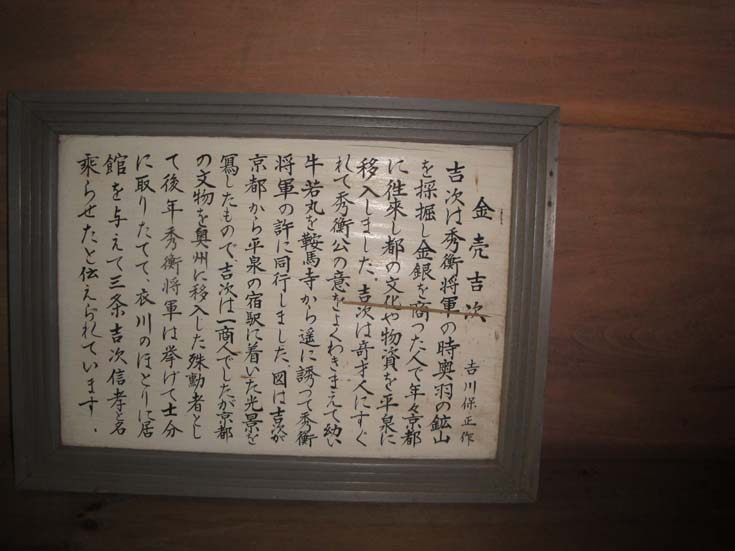 金売吉次
吉川保正作
吉次は秀衡将軍の時奥羽の鉱山
を採掘し金銀を商つた人で年々京都
に往来し都の文化や物資を平泉に
移入しました、吉次は奇才人にすぐ
れて秀衡公の意をよくわきまえて幼い
牛若丸を鞍馬寺から遥に誘つて秀衡
将軍の許に同行しました、図は吉次が
京都から平泉の宿駅に着いた光景を
寫したもので、吉次は一商人でしたが京都
の文物を奥州に移入した殊勳者とし
て後年秀衡将軍は挙げて士分
に取りたてて、衣川のほとりに居
館を与えて三条吉次信孝と名
乗らせたと伝えられています、